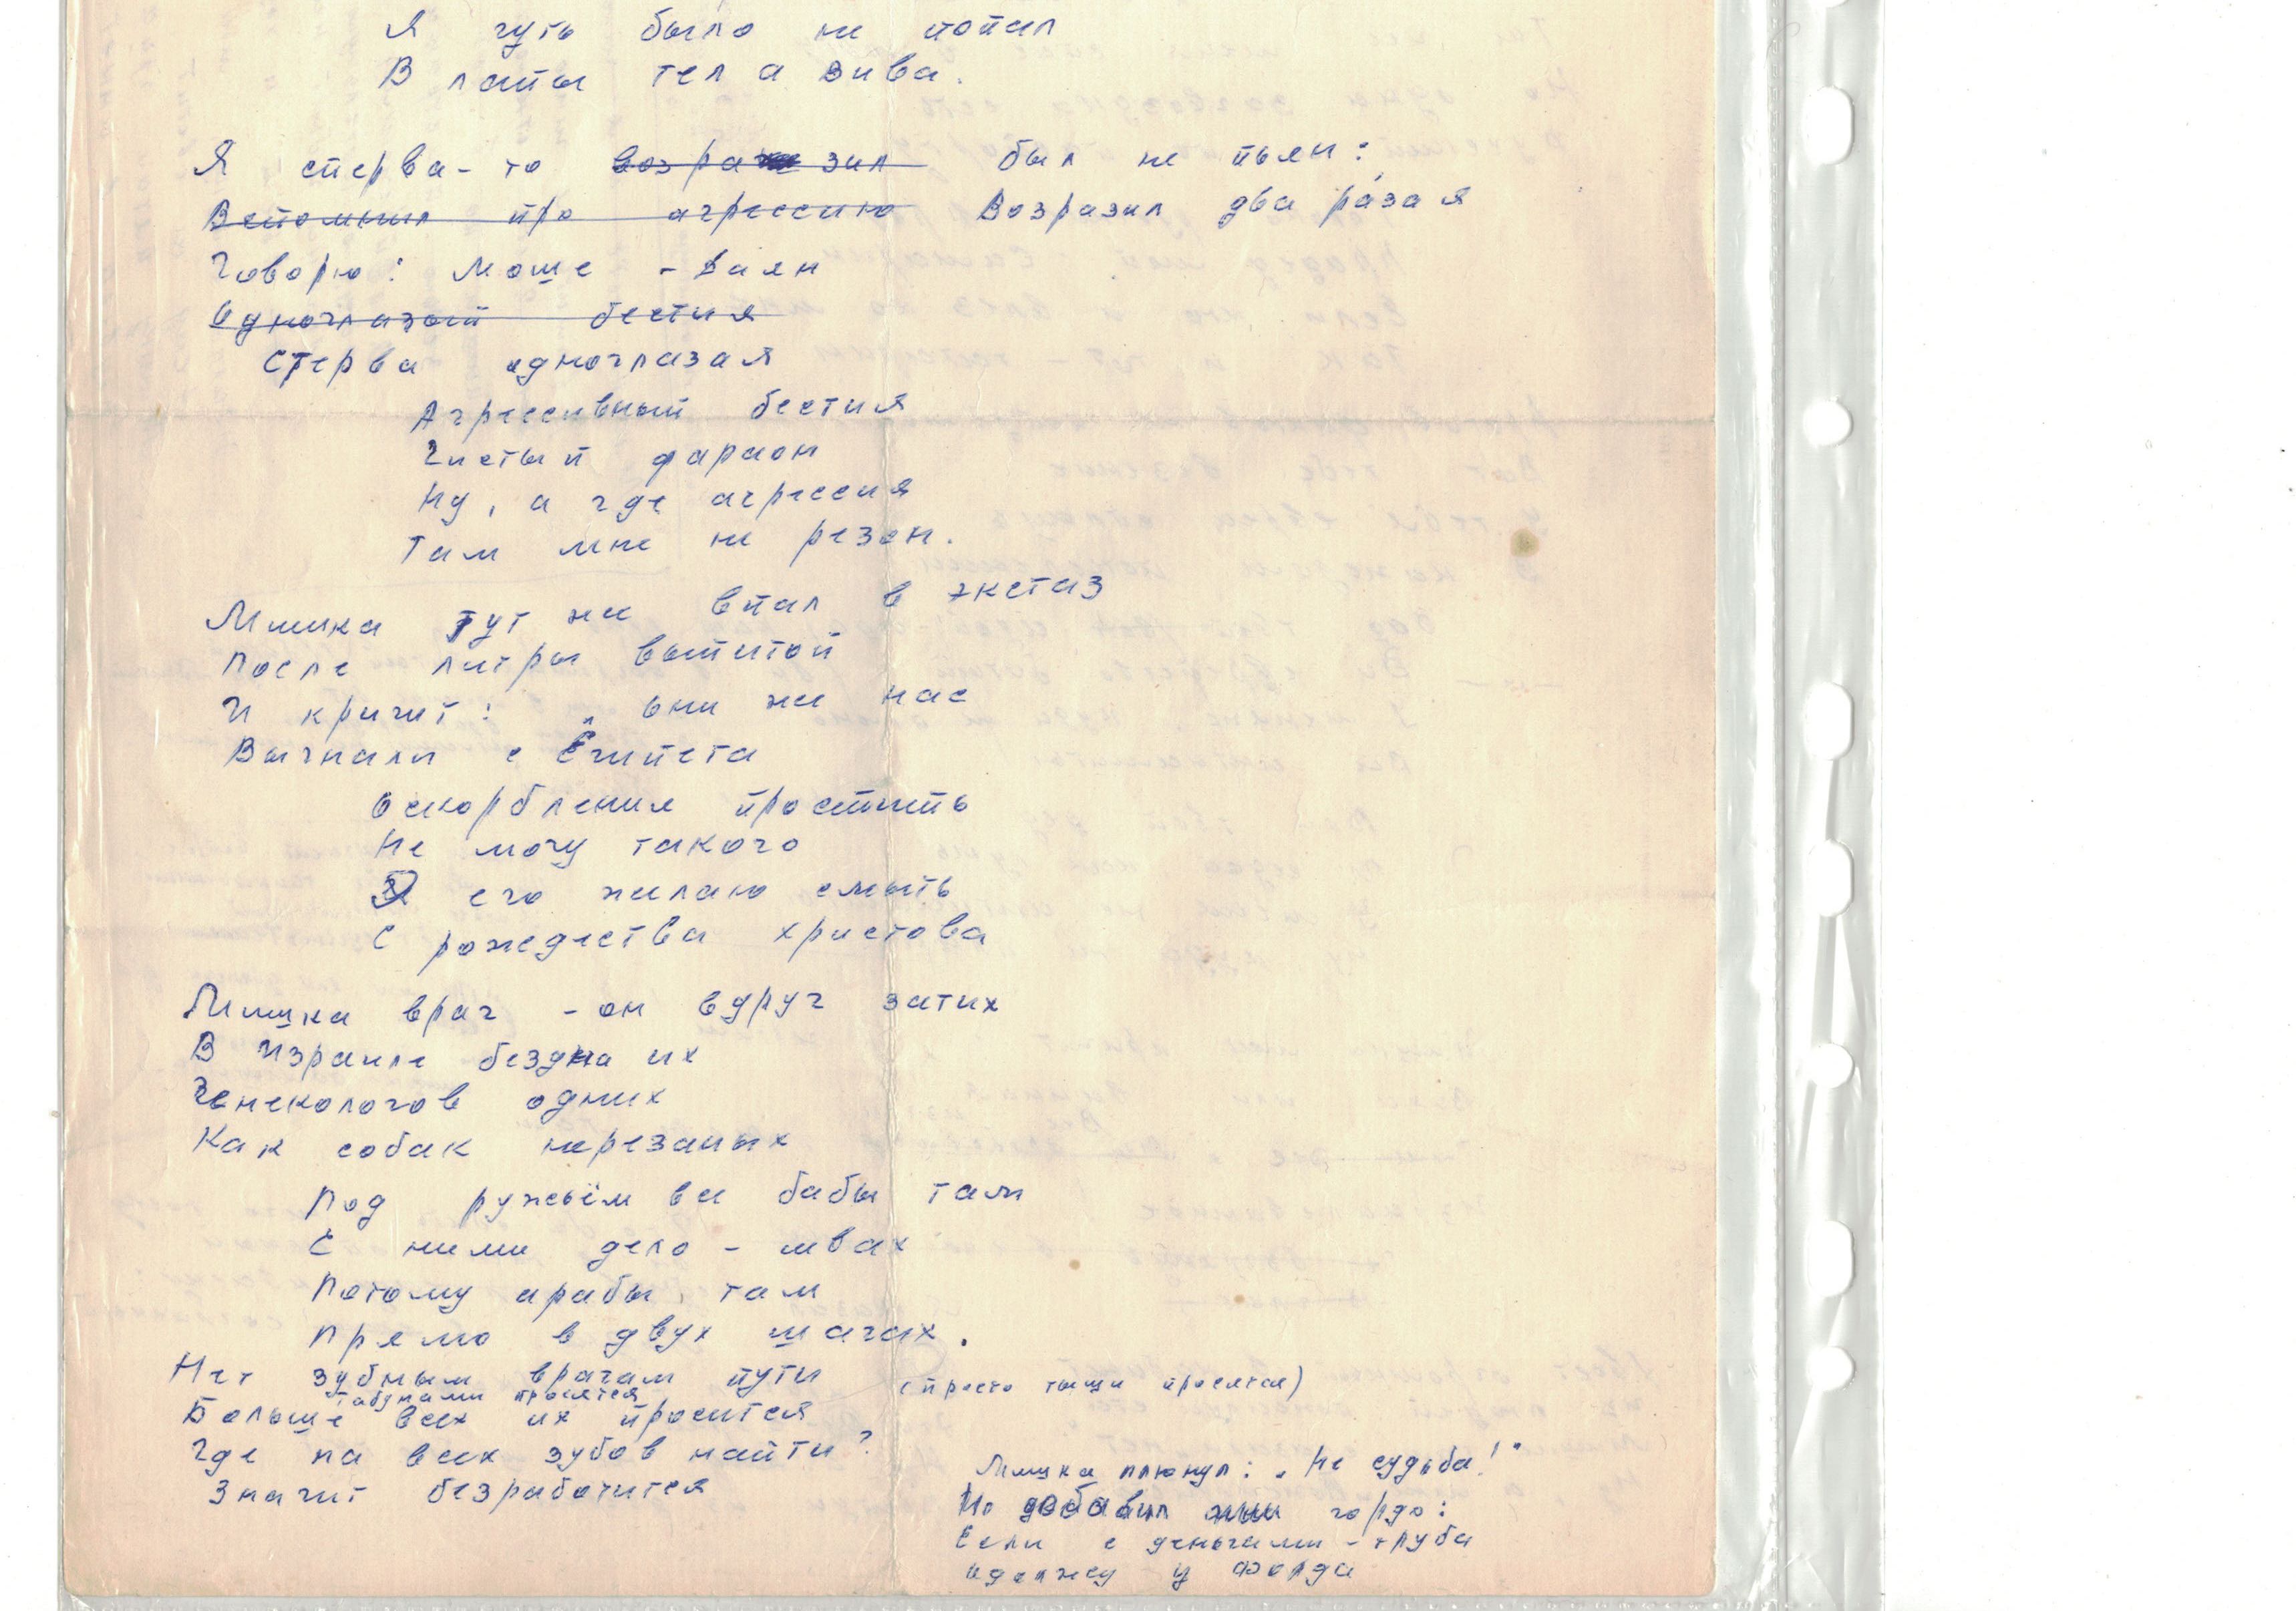 Я чуть было не попал
В лапы тел а вива.
Я сперва-то возразил был не пьян:
Вспомнил про агрессию Возразил два раза я
Говорю: Моше - Даян
Одноглазый бестия
Стерва одноглазая
Агрессивный бестия
Чистый фараон
Ну, а где агрессия
Там мне не резон.
Мишка тут же впал в экстаз
После литры выпитой
И кричит: „ они же нас
Выгнали с Египета
Оскорбления простить
Не могу такого
Я его желаю смыть
С рождества христова
Мишка врач - он вдруг затих
В Израиле бездна их
Генекологов одних
Как собак нерезаных
Под ружьём все бабы там
С ними дело - швах
Потому арабы там
Прямо в двух шагах.
Нет зубным врачам пути (просто тыщи просятся)
табунами просятся
Больше всех их просится
Где на всех зубов найти?
Значит безработится
Мишка плюнул: „Не судьба!"
Но добавил гордо:
Если с деньгами - труба
Одолжу у Форда